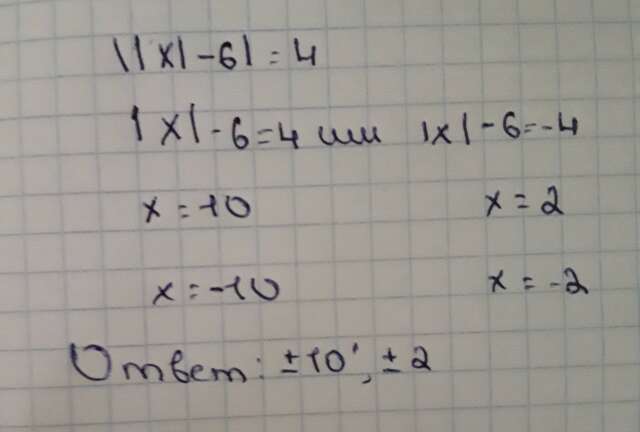 ||x|-6|=4
|x|-6=4 или |x|-6=-4
x=10 x=2
x=-10 x=-2
Ответ: ±10; ±2